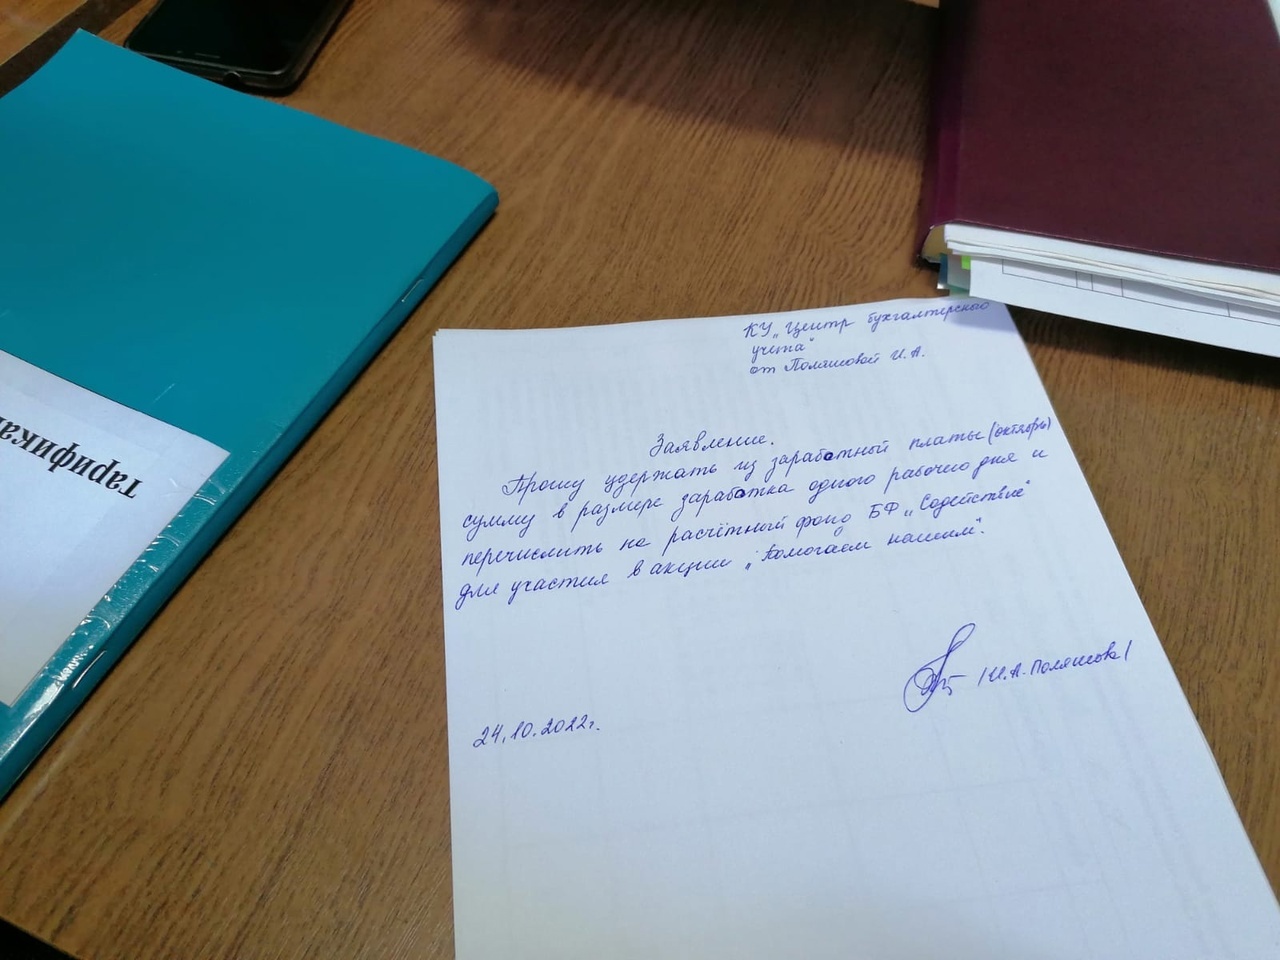 КУ „Центр бухгалтерского
учета"
от Поляшовой И.А.
Заявление.
Прошу удержать из заработной платы (октябрь)
сумму в размере заработка одного рабочего дня и
перечислить на расчётный фонд БФ „Содействие"
для участия в акции „Помогаем нашим".
/И.А. Поляшова/
24.10.2022г.
Тарифика